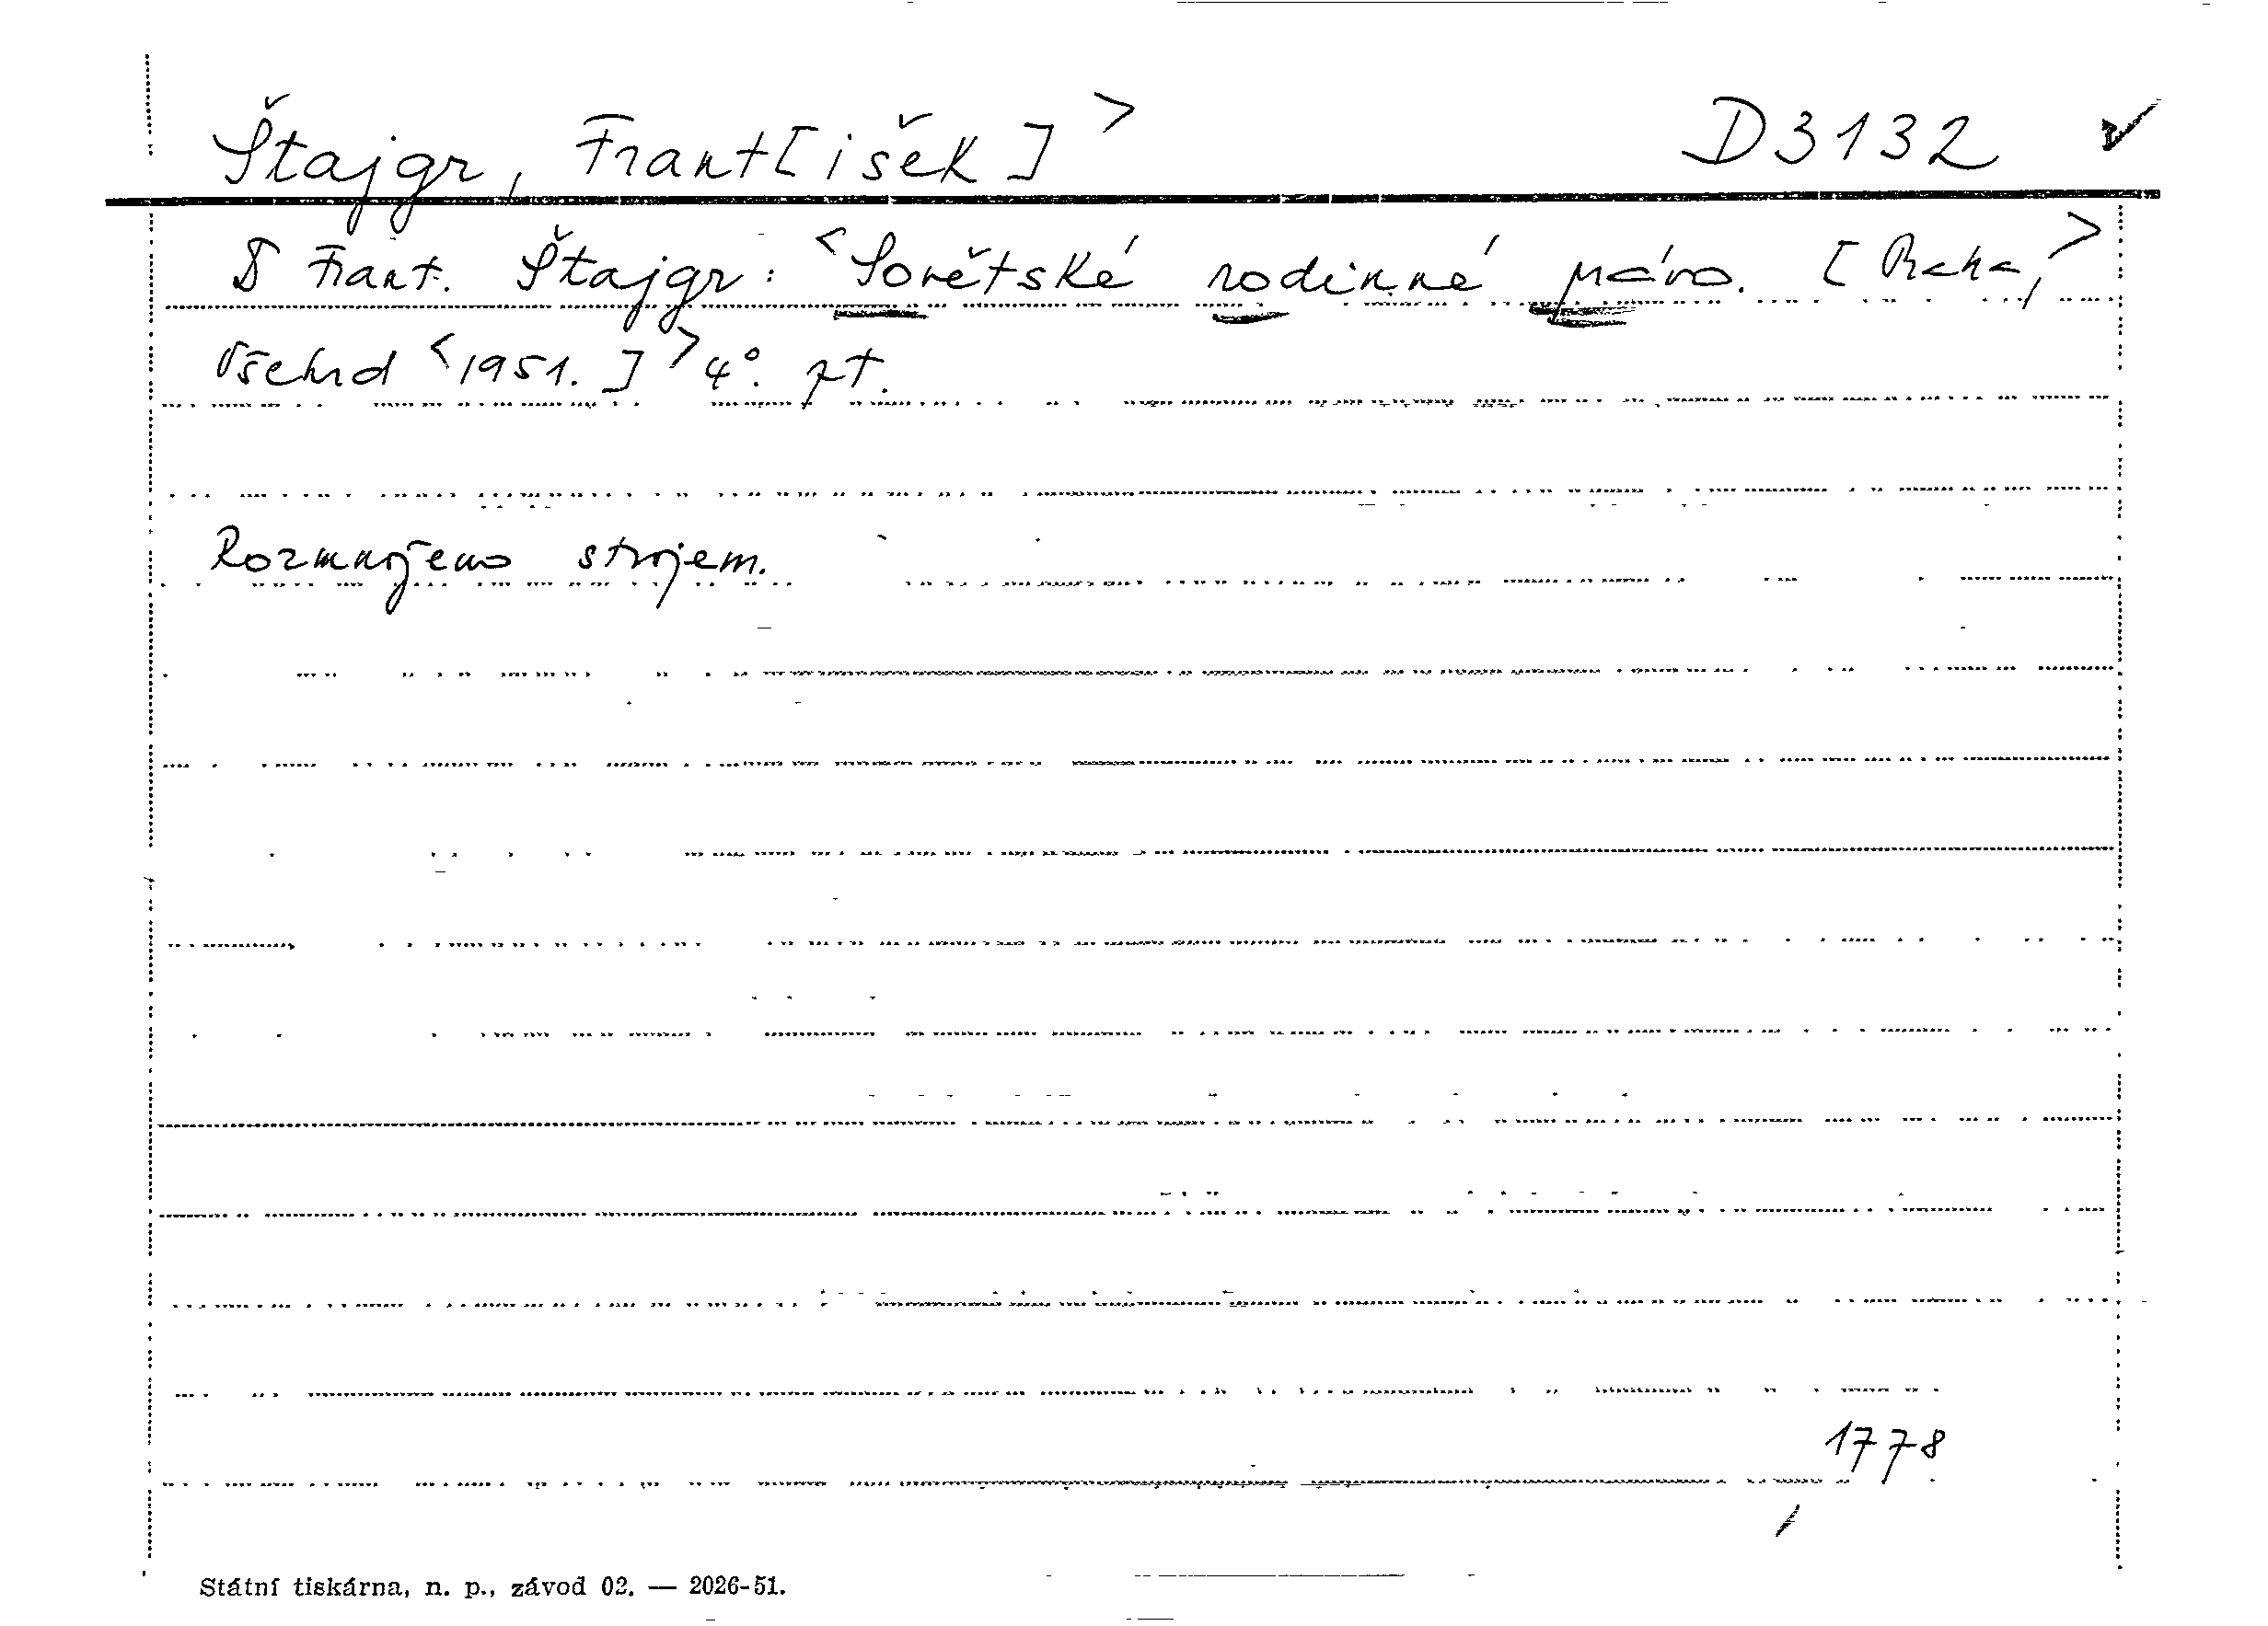 Štajgr, Frant[išek] > D3132 ✓
Frant. Štajgr: <Sovětské rodinné právo. [Praha,>
Všehrd <1951.]> 4°.
Rozmnoženo strojem.
1778
Státní tiskárna, n. p., závod 02. — 2026-51.